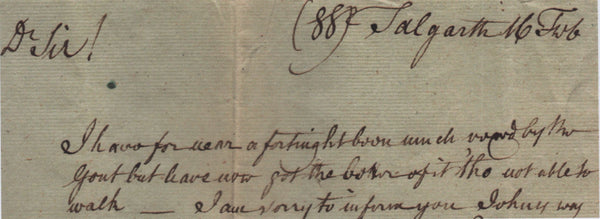 Dr Sir!
(88) Talgarth 16 Feb
I have for near a fortnight been much vexed by the
Gout but have now got the better of it, tho not able to
walk — I am sorry to inform you Johny was